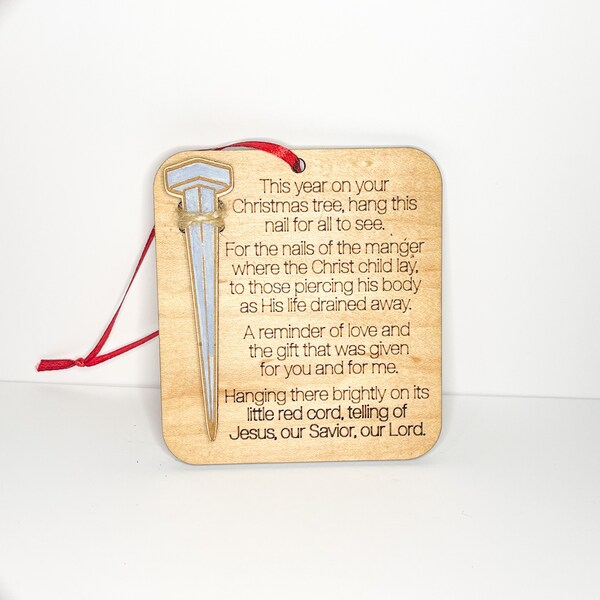 This year on your
Christmas tree, hang this
nail for all to see.
For the nails of the manger
where the Christ child lay,
to those piercing his body
as His life drained away.
A reminder of love and
the gift that was given
for you and for me.
Hanging there brightly on its
little red cord, telling of
Jesus, our Savior, our Lord.